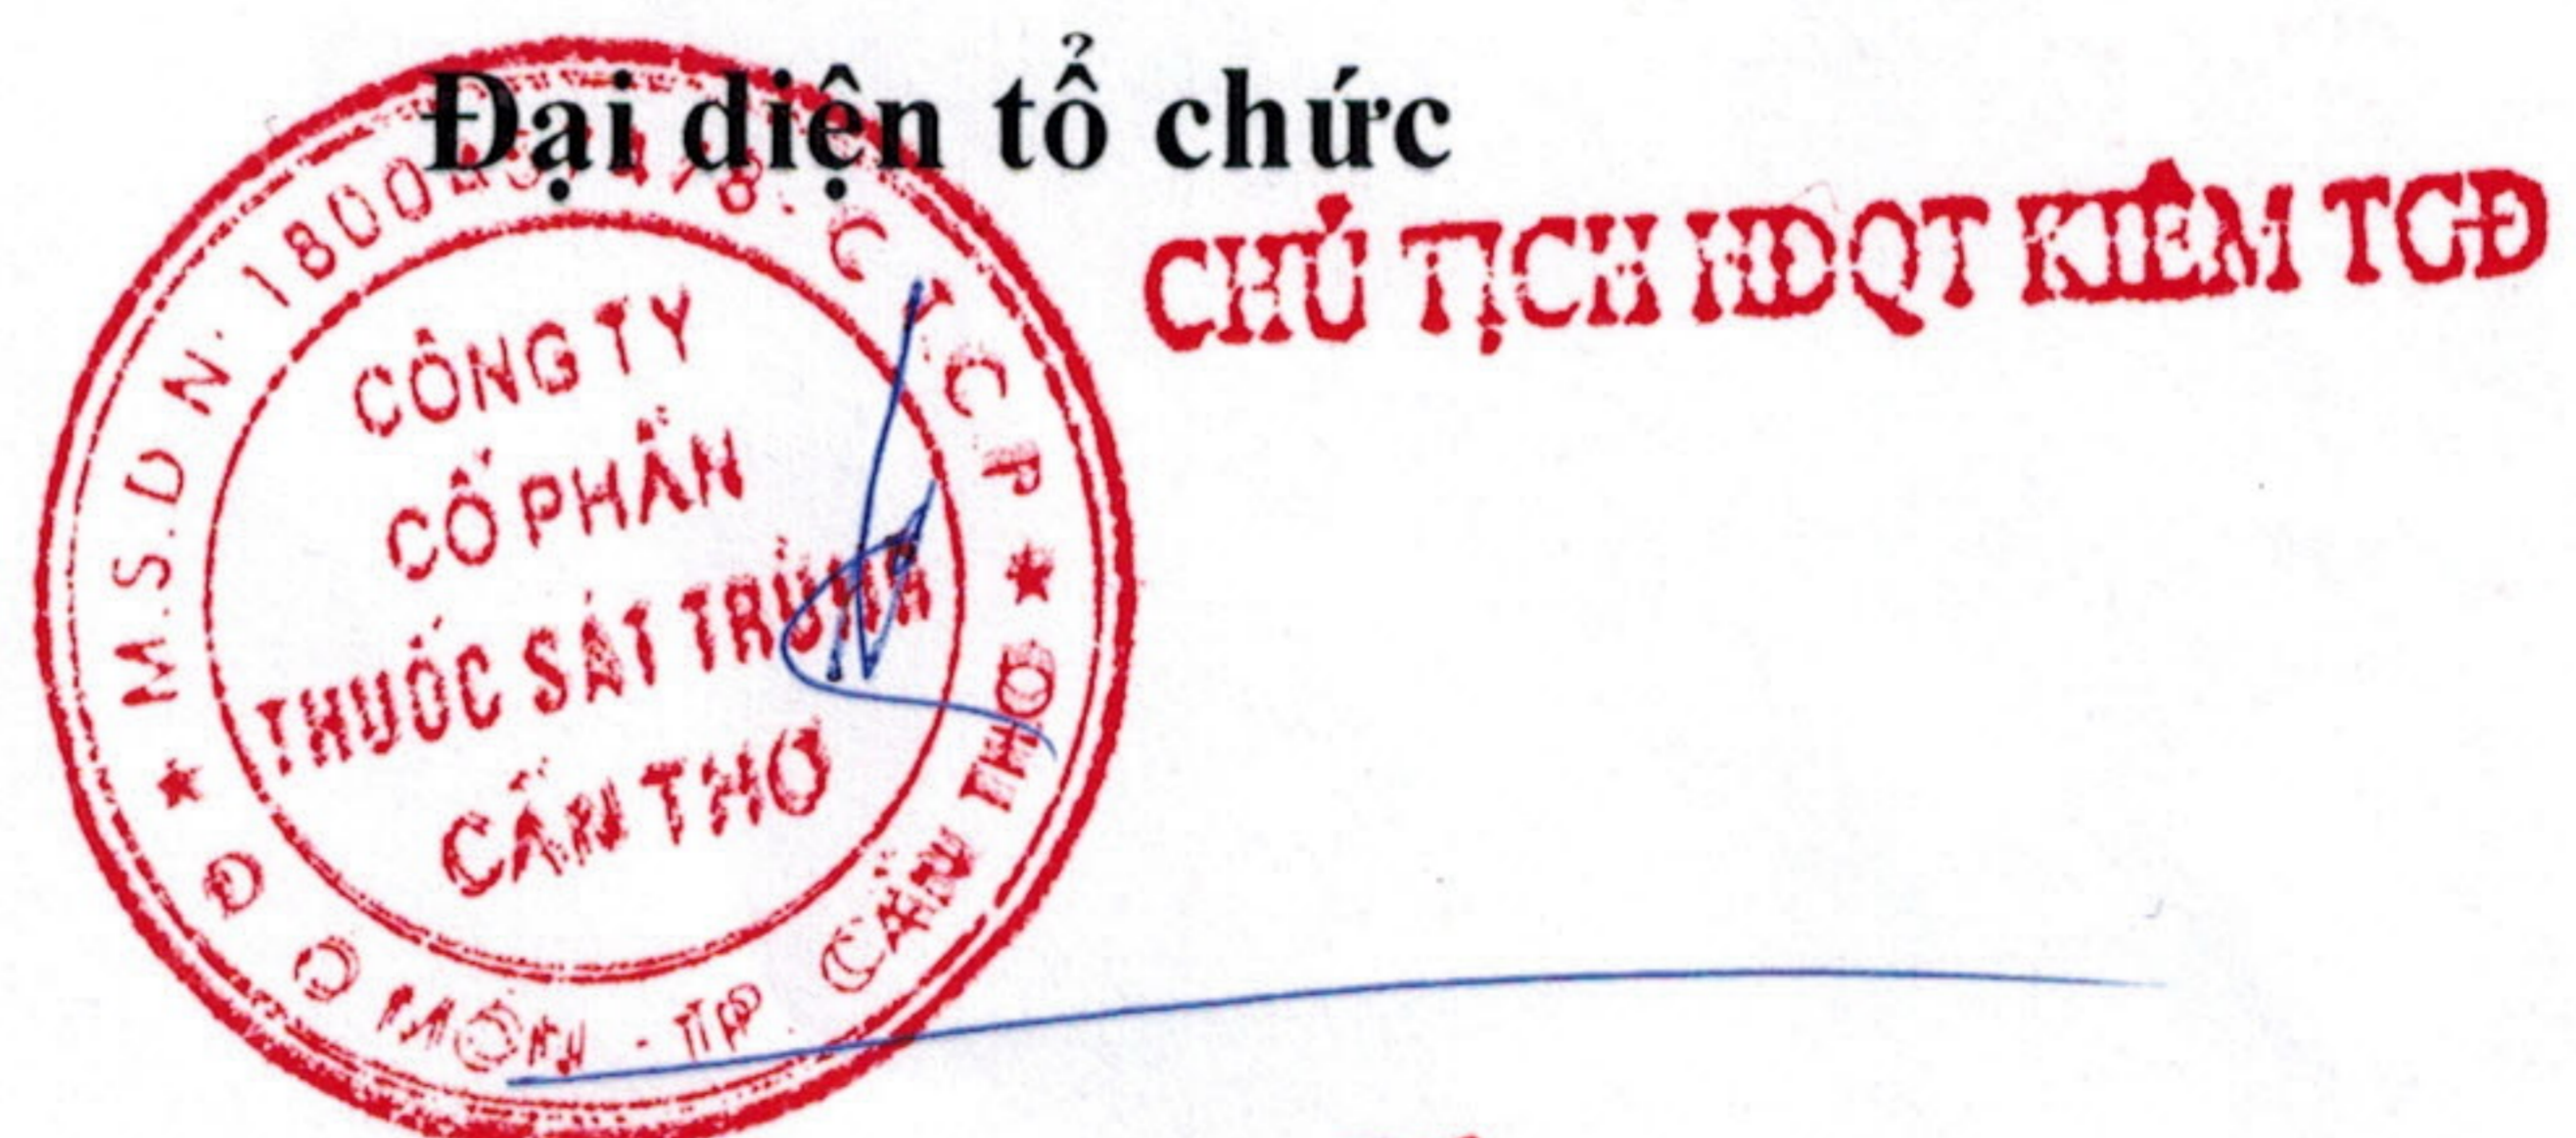 Đại diện tổ chức
CHỦ TỊCH HĐQT KIÊM TGĐ
M.S.D.N: C.T.C.P
CÔNG TY
CỔ PHẦN
THUỐC SÁT TRÙNG
CẦN THƠ
Q Ô MÔN - TP. CẦN THƠ